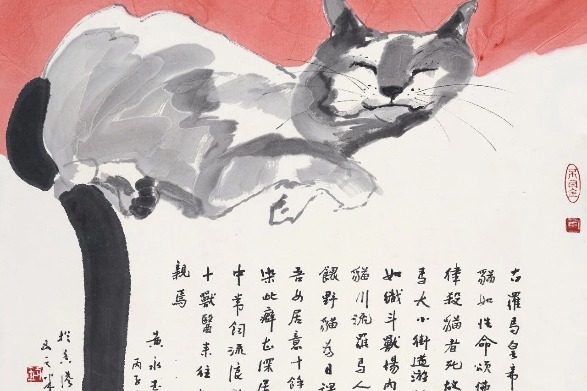 古羅馬皇帝
貓如性命頌佈
律殺貓者死故
馬大小街道游
如蟻斗獸場內
貓川流羅馬人
餵野貓為日課
吾女居意十餘
染此癖甚深居
中常飼流浪
十獸醫來往
親焉
黃永玉
丙子
於香港